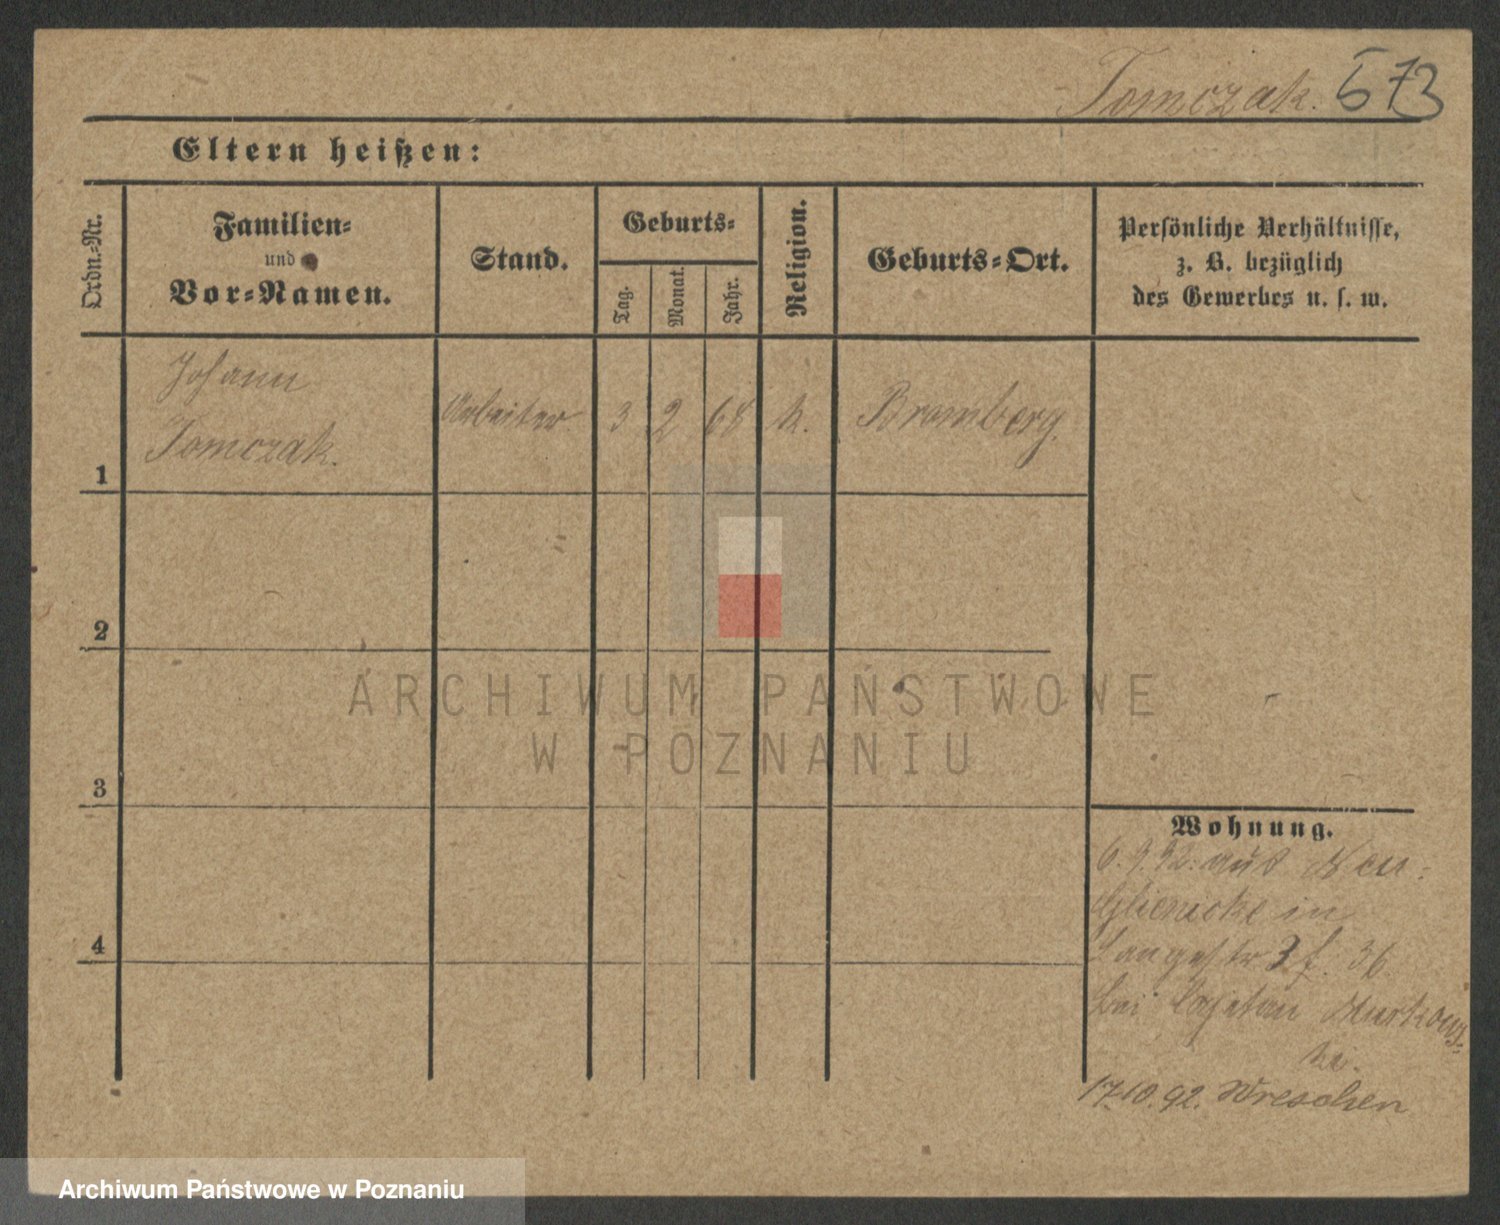 Tomczak. 573
Eltern heißen:
Ordn.=Nr.
Familien=
und
Vor=Namen.
Stand.
Geburts=
Tag.
Monat.
Jahr.
Religion.
Geburts=Ort.
Persönliche Verhältnisse,
z. B. bezüglich
des Gewerbes u. s. w.
Johann
Tomczak.
1
Arbeiter
3
2
68
k.
Bromberg.
2
3
4
ARCHIWUM PAŃSTWOWE
W POZNANIU
Wohnung.
6.9.92. aus Neu=
Glienicke in
Langestr 3 f. 36
bei Cajetan
17.10.92. Wreschen
Archiwum Państwowe w Poznaniu